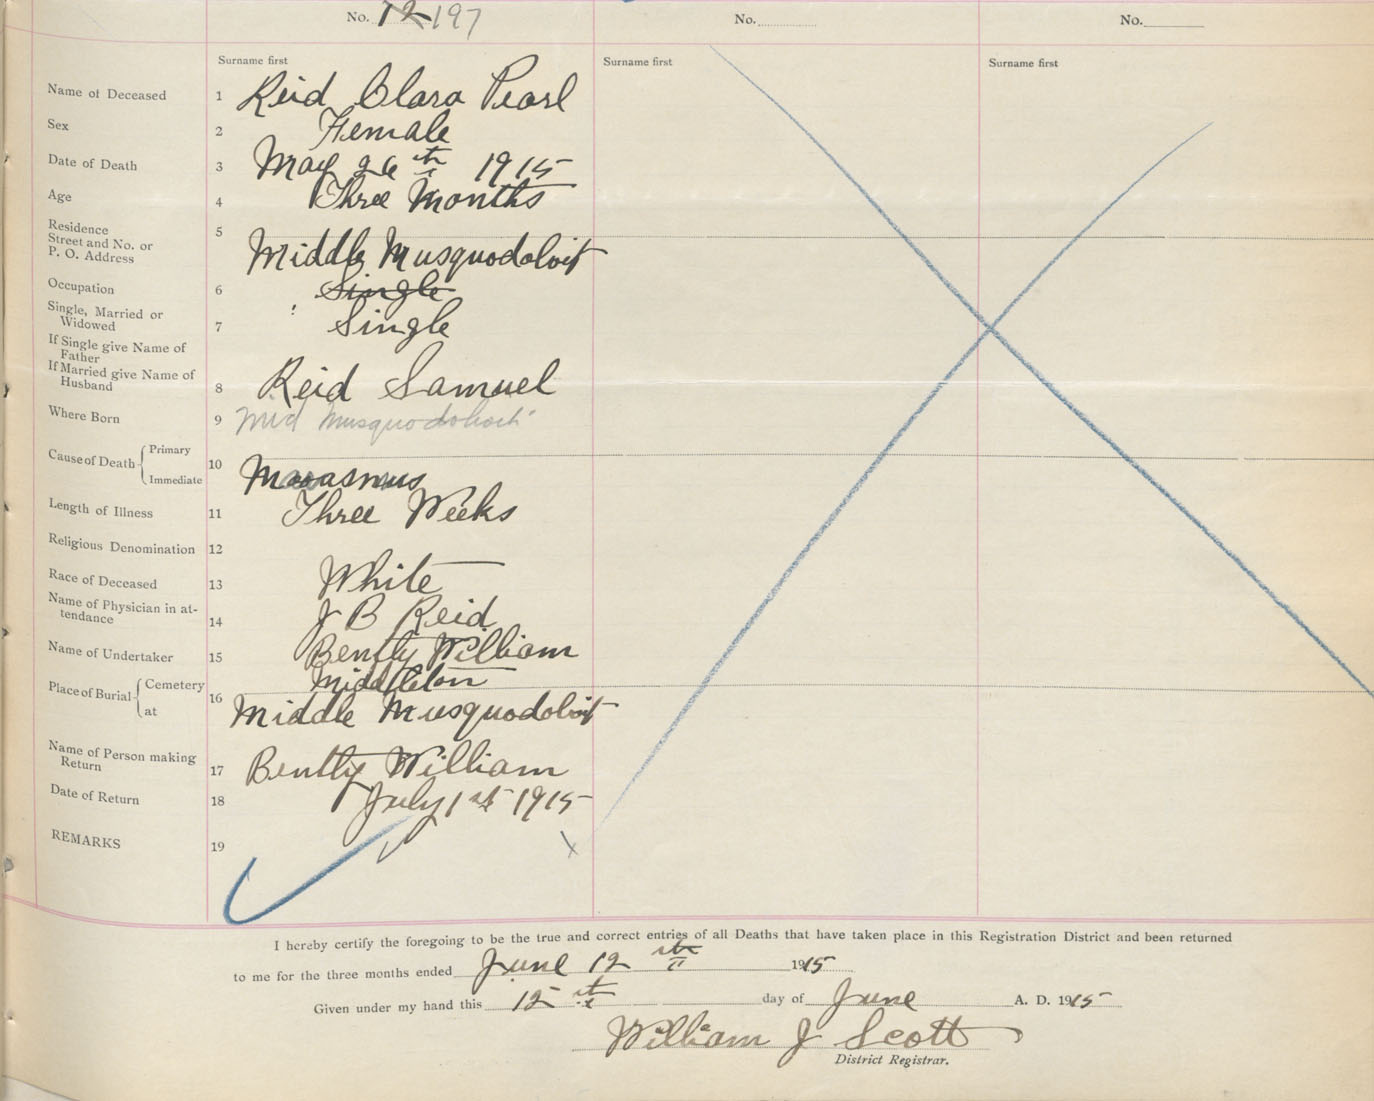 No. 12 197
No.
No.
Surname first
Surname first
Surname first
Name of Deceased 1 Reid Clara Pearl
Sex 2 Female
Date of Death 3 May 26th 1915
Age 4 Three Months
Residence
Street and No. or
P. O. Address 5 Middle Musquodoboit
Occupation 6 Single
Single, Married or
Widowed 7 Single
If Single give Name of
Father
If Married give Name of
Husband 8 Reid Samuel
Where Born 9 Mid Musquodoboit
Cause of Death Primary
Immediate 10 Marasmus
Length of Illness 11 Three Weeks
Religious Denomination 12
Race of Deceased 13 White
Name of Physician in at-
tendance 14 J B Reid
Name of Undertaker 15 Bently William
Place of Burial Cemetery Middleton
at 16 Middle Musquodoboit
Name of Person making
Return 17 Bently William
Date of Return 18 July 1st 1915
REMARKS 19
I hereby certify the foregoing to be the true and correct entries of all Deaths that have taken place in this Registration District and been returned
to me for the three months ended June 12th 1915
Given under my hand this 12th day of June A. D. 1915
William J Scott
District Registrar.